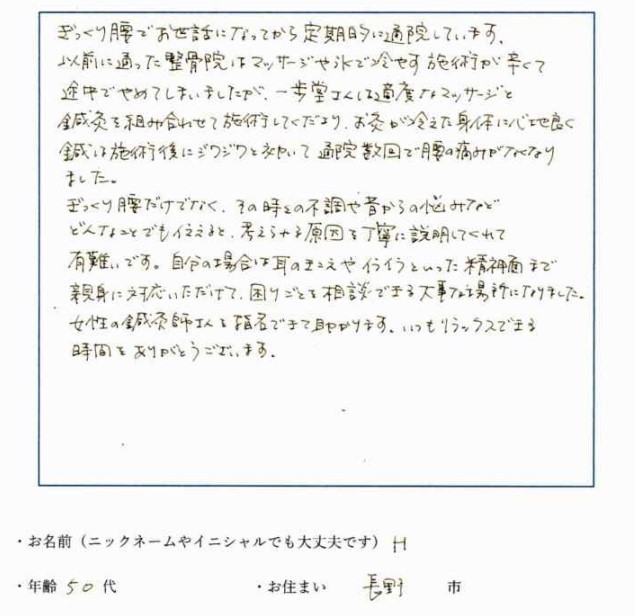 ぎっくり腰でお世話になってから定期的に通院しています。
以前に通った整骨院はマッサージや氷で冷やす施術が辛くて
途中でやめてしまいましたが、一歩堂さんは適度なマッサージと
鍼灸を組み合わせて施術してくださり、お灸が冷えた身体に心地良く
鍼は施術後にジワジワと効いて通院数回で腰の痛みがなくなり
ました。
ぎっくり腰だけでなく、その時々の不調や昔からの悩みなど
どんなことでも伝えると、考えられる原因を丁寧に説明してくれて
有難いです。自分の場合は耳のきこえやイライラといった精神面まで
親身に対応いただけて、困りごとを相談できる大事な場所になりました。
女性の鍼灸師さんを指名できて助かります。いつもリラックスできる
時間をありがとうございます。
・お名前（ニックネームやイニシャルでも大丈夫です） H
・年齢 50 代 ・お住まい 長野 市